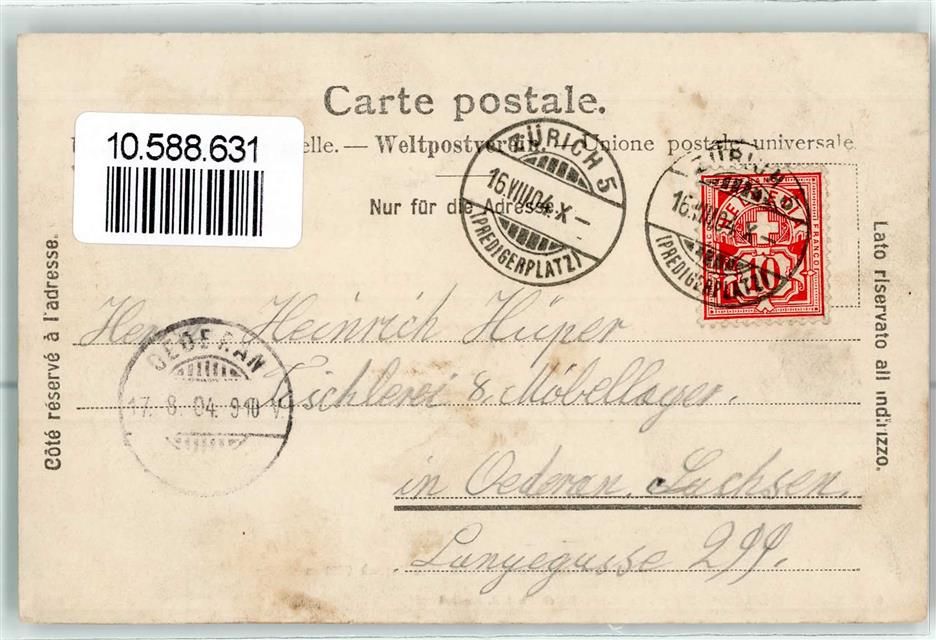 Carte postale.
10.588.631
elle. — Weltpostverein. Unione postale universale
Nur für die Adresse.
ZÜRICH 5
16.VIII.04.X–
(PREDIGERPLATZ)
ZÜRICH
16.VIII.04.X–
(PREDIGERPLATZ)
HELVETIA
FRANCO
10
Côté réservé à l'adresse.
Lato riservato all indirizzo.
Herrn Heinrich Hüper
Tischlerei & Möbellager.
in Oederan, Sachsen.
Langegasse 299.
OEDERAN
17. 8. 04. 9 10 V.